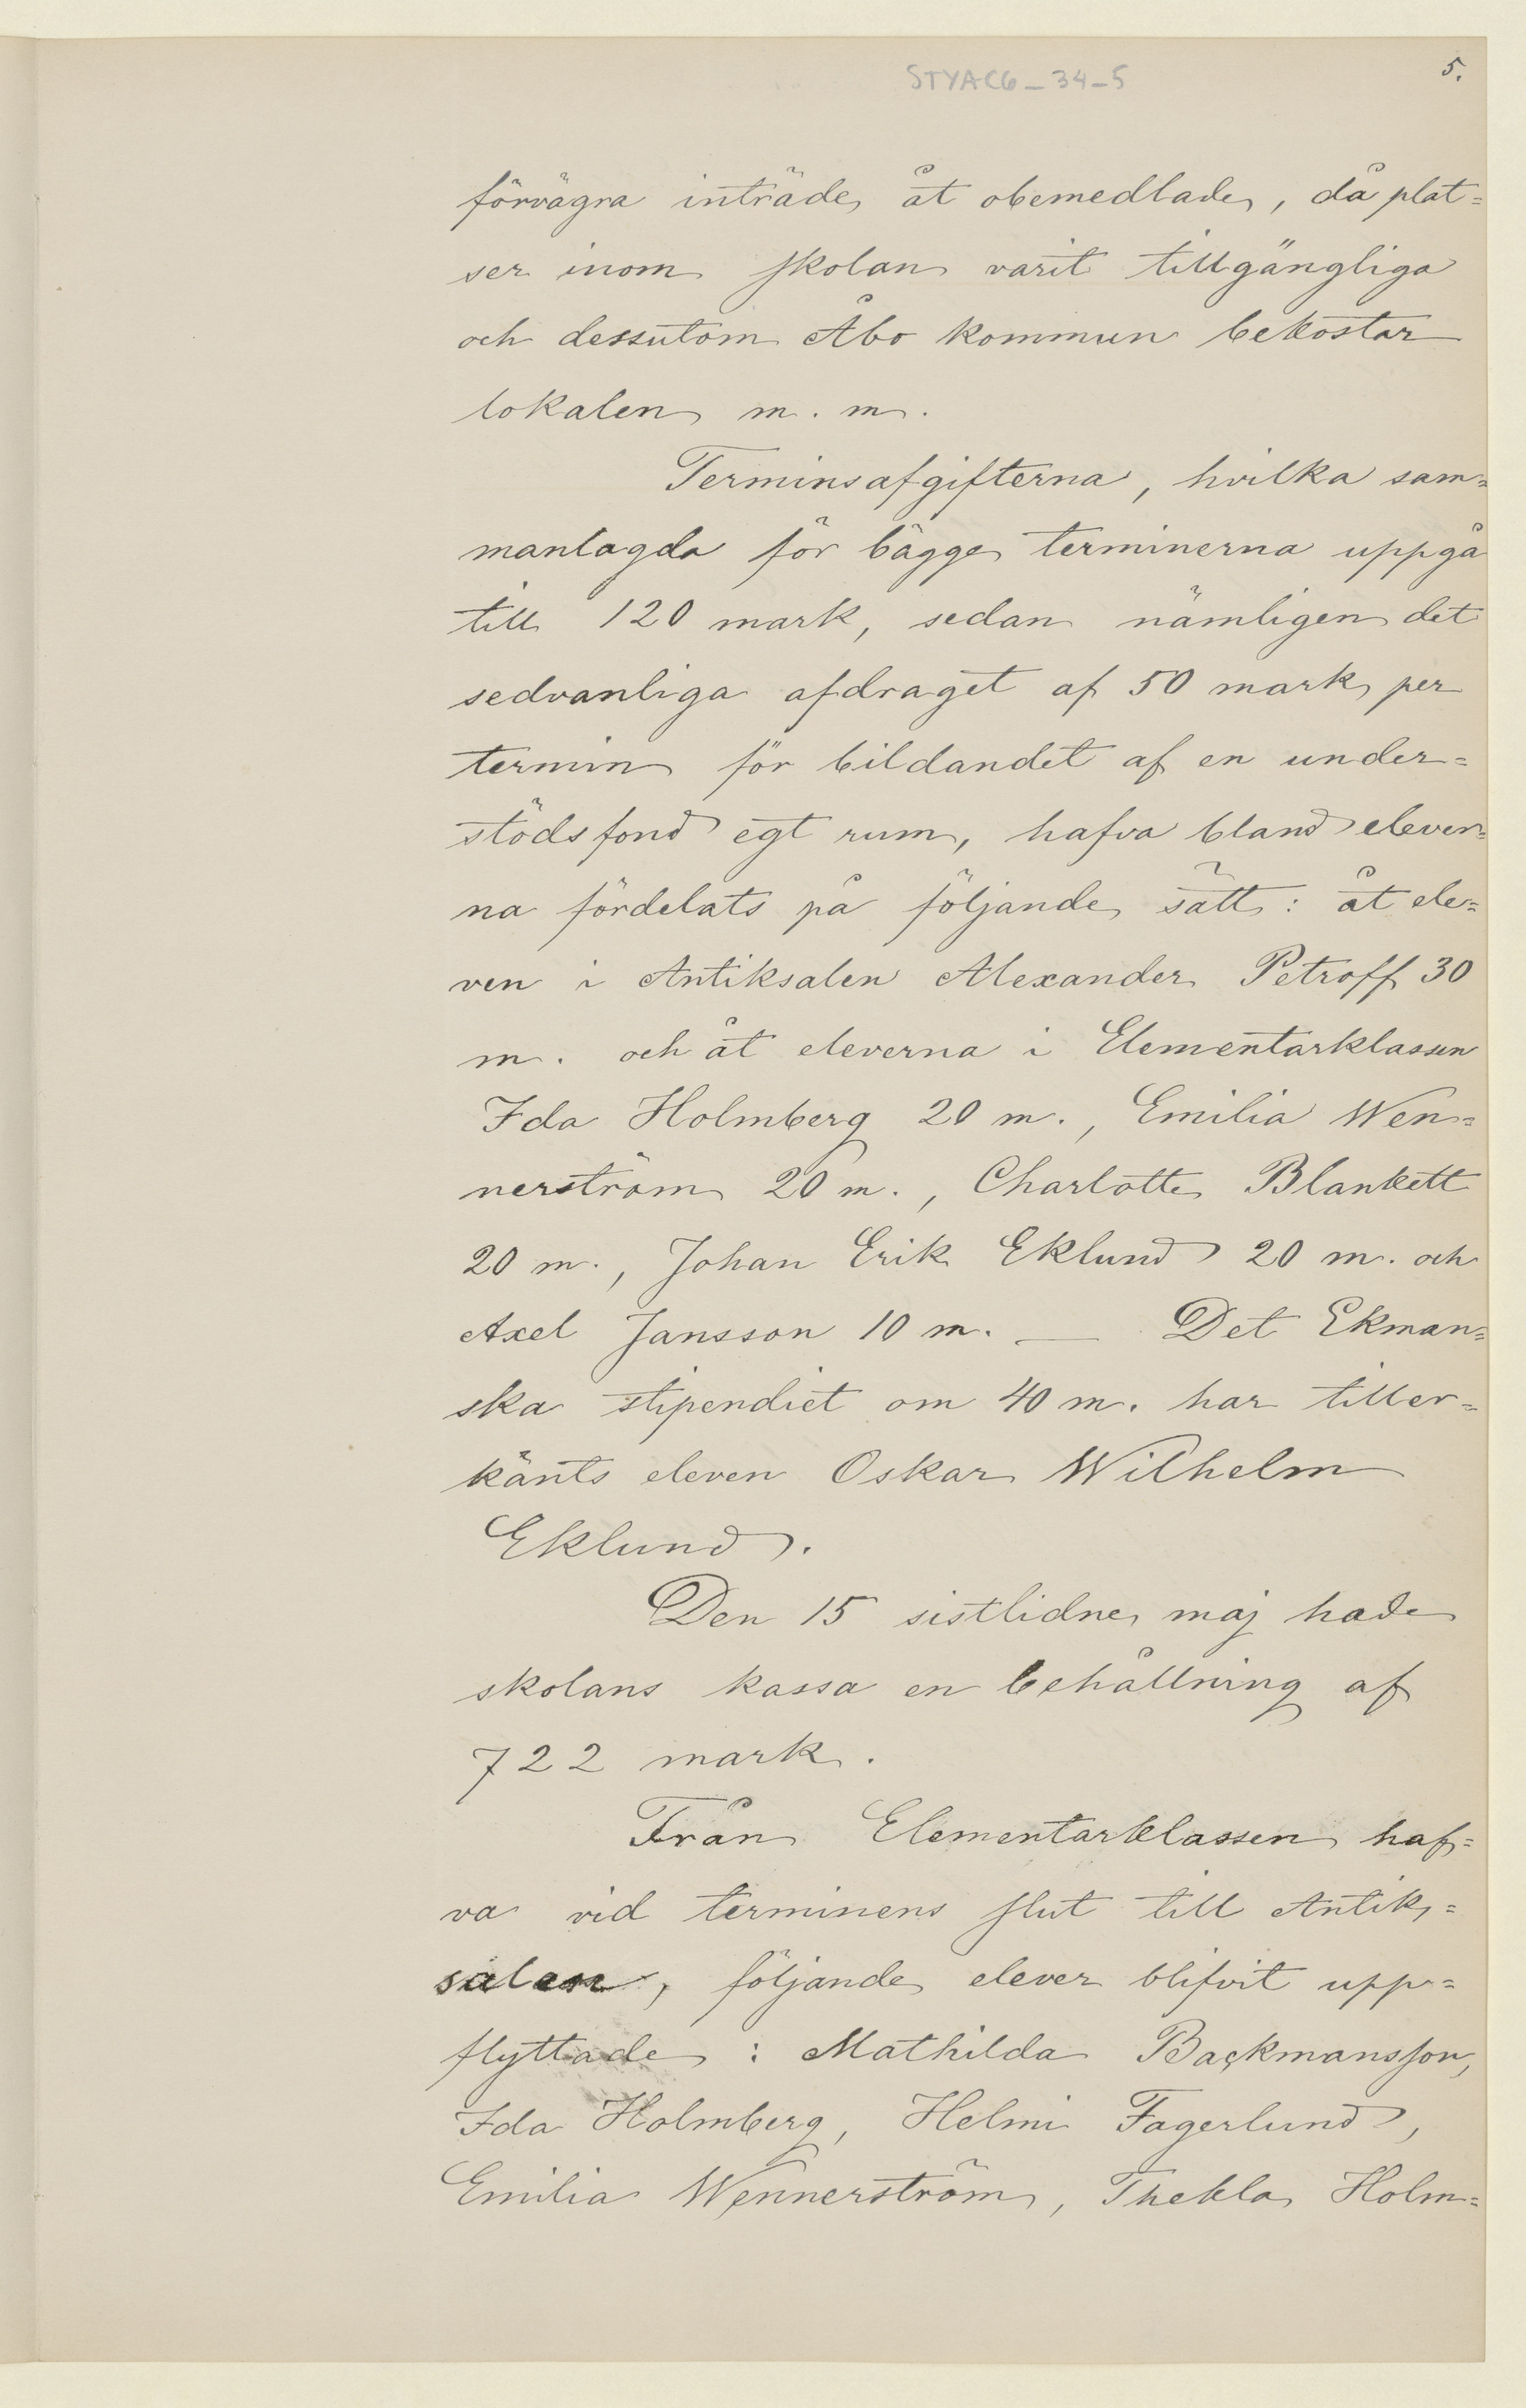 STYAC6_34_5
5.
förvägra inträde åt obemedlade, då plat=
ser inom skolan varit tillgängliga
och dessutom Åbo kommun bekostar
lokalen m. m.
Terminsafgifterna, hvilka sam=
manlagda för bägge terminerna uppgå
till 120 mark, sedan nämligen det
sedvanliga afdraget af 50 mark per
termin för bildandet af en under=
stödsfond egt rum, hafva bland elever=
na fördelats på följande sätt: åt ele=
ven i Antiksalen Alexander Petroff 30
m. och åt eleverna i Elementarklassen
Ida Holmberg 20 m., Emilia Wen=
nerström 20 m., Charlotte Blankett
20 m., Johan Erik Eklund 20 m. och
Axel Jansson 10 m. — Det Ekman=
ska stipendiet om 40 m. har tiller=
känts eleven Oskar Wilhelm
Eklund.
Den 15 sistlidne maj hade
skolans kassa en behållning af
722 mark.
Från Elementarklassen haf=
va vid terminens slut till Antik=
salen, följande elever blifvit upp=
flyttade: Mathilda Backmansson,
Ida Holmberg, Helmi Fagerlund,
Emilia Wennerström, Thekla Holm=